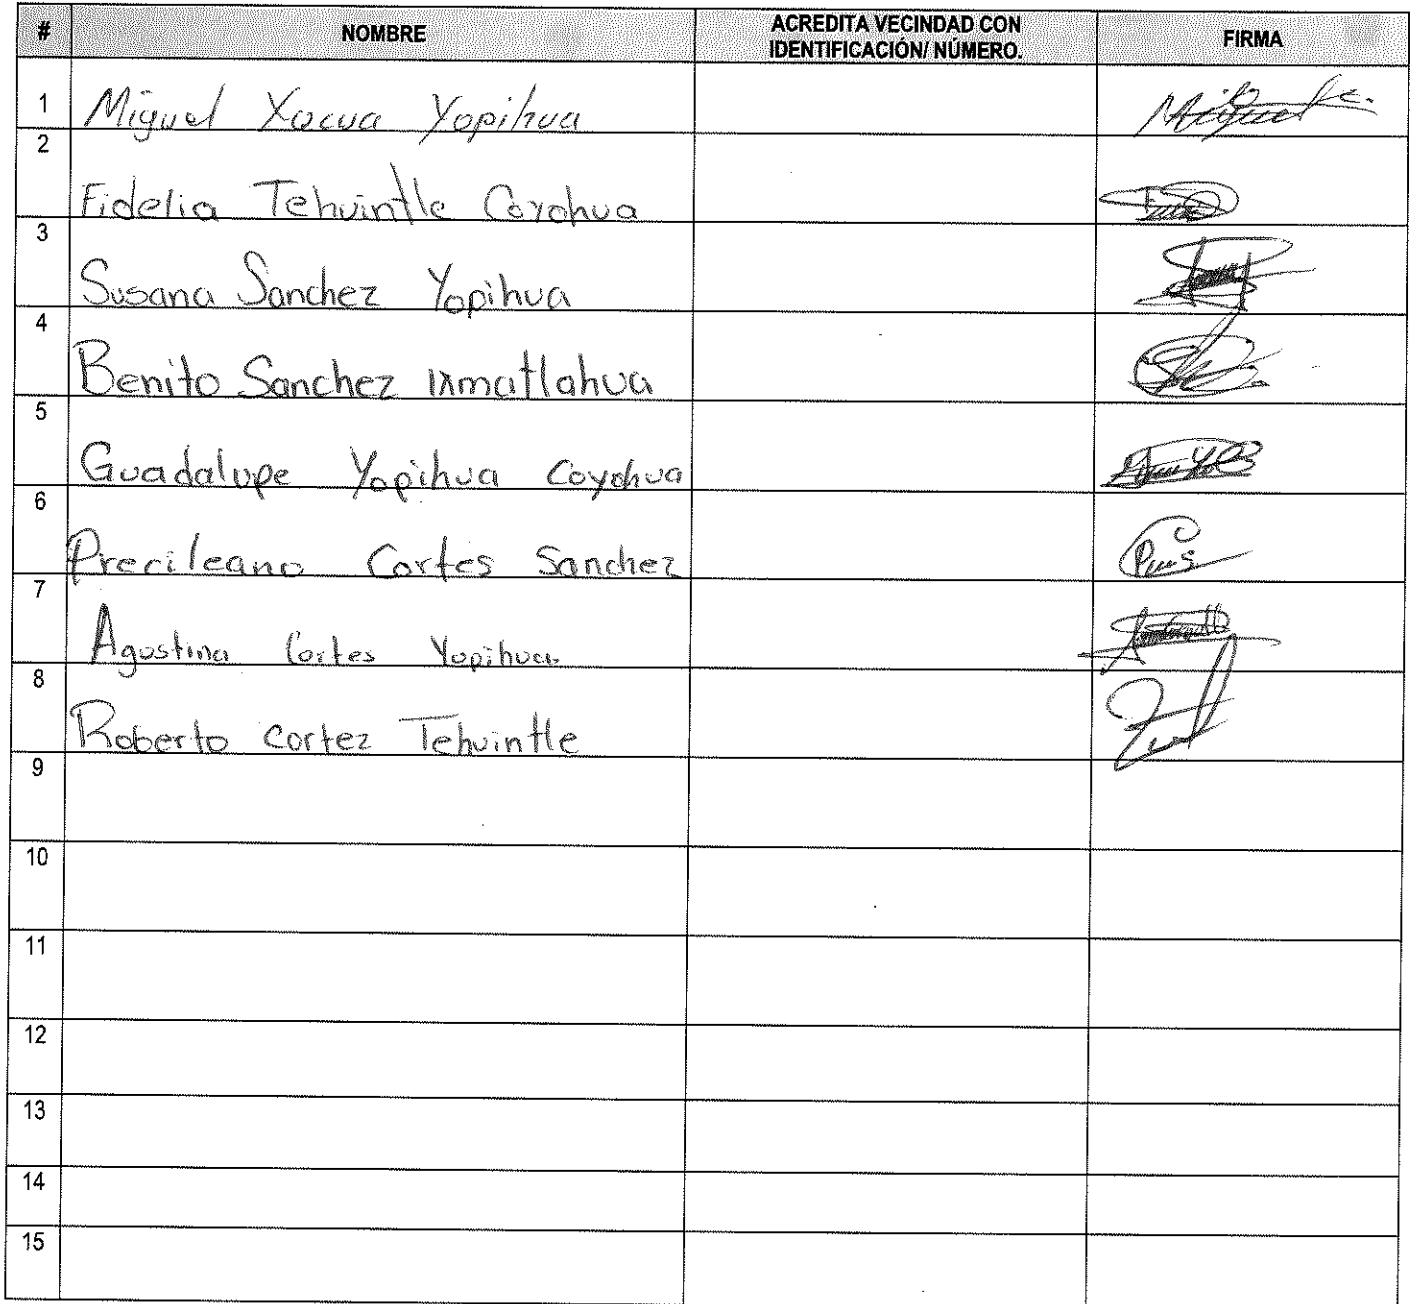 # NOMBRE ACREDITA VECINDAD CON IDENTIFICACIÓN/ NÚMERO. FIRMA
1 Miguel Xocua Yopihua
2 Fidelia Tehuintle Coyohua
3 Susana Sanchez Yopihua
4 Benito Sanchez Ixmatlahua
5 Guadalupe Yopihua Coyohua
6 Precileano Cortes Sanchez
7 Agustina Cortes Yopihua
8 Roberto Cortez Tehuintle
9
10
11
12
13
14
15